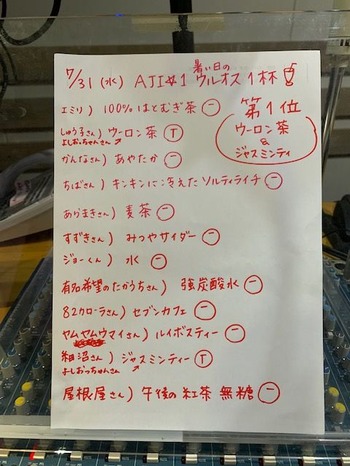 7/31 (水) AJI#1 暑い日の ウルオス 1杯
第1位
ウーロン茶
&
ジャスミンティ
エミリ) 100%はとむぎ茶 一
しゅう子さん) ウーロン茶 T
よしおっちゃんさん
かんなさん) あやたか 一
ちばさん) キンキンに冷えた ソルティライチ 一
あらまきさん) 麦茶 一
すずきさん) みつやサイダー 一
ジョーくん) 水 一
有知希望のたかうちさん) 強炭酸水 一
82カローラさん) セブンカフェ 一
ヤムヤムウマイさん) ルイボスティー 一
細沼さん) ジャスミンティー T
よしおっちゃんさん
屋根屋さん) 午後の紅茶 無糖 一